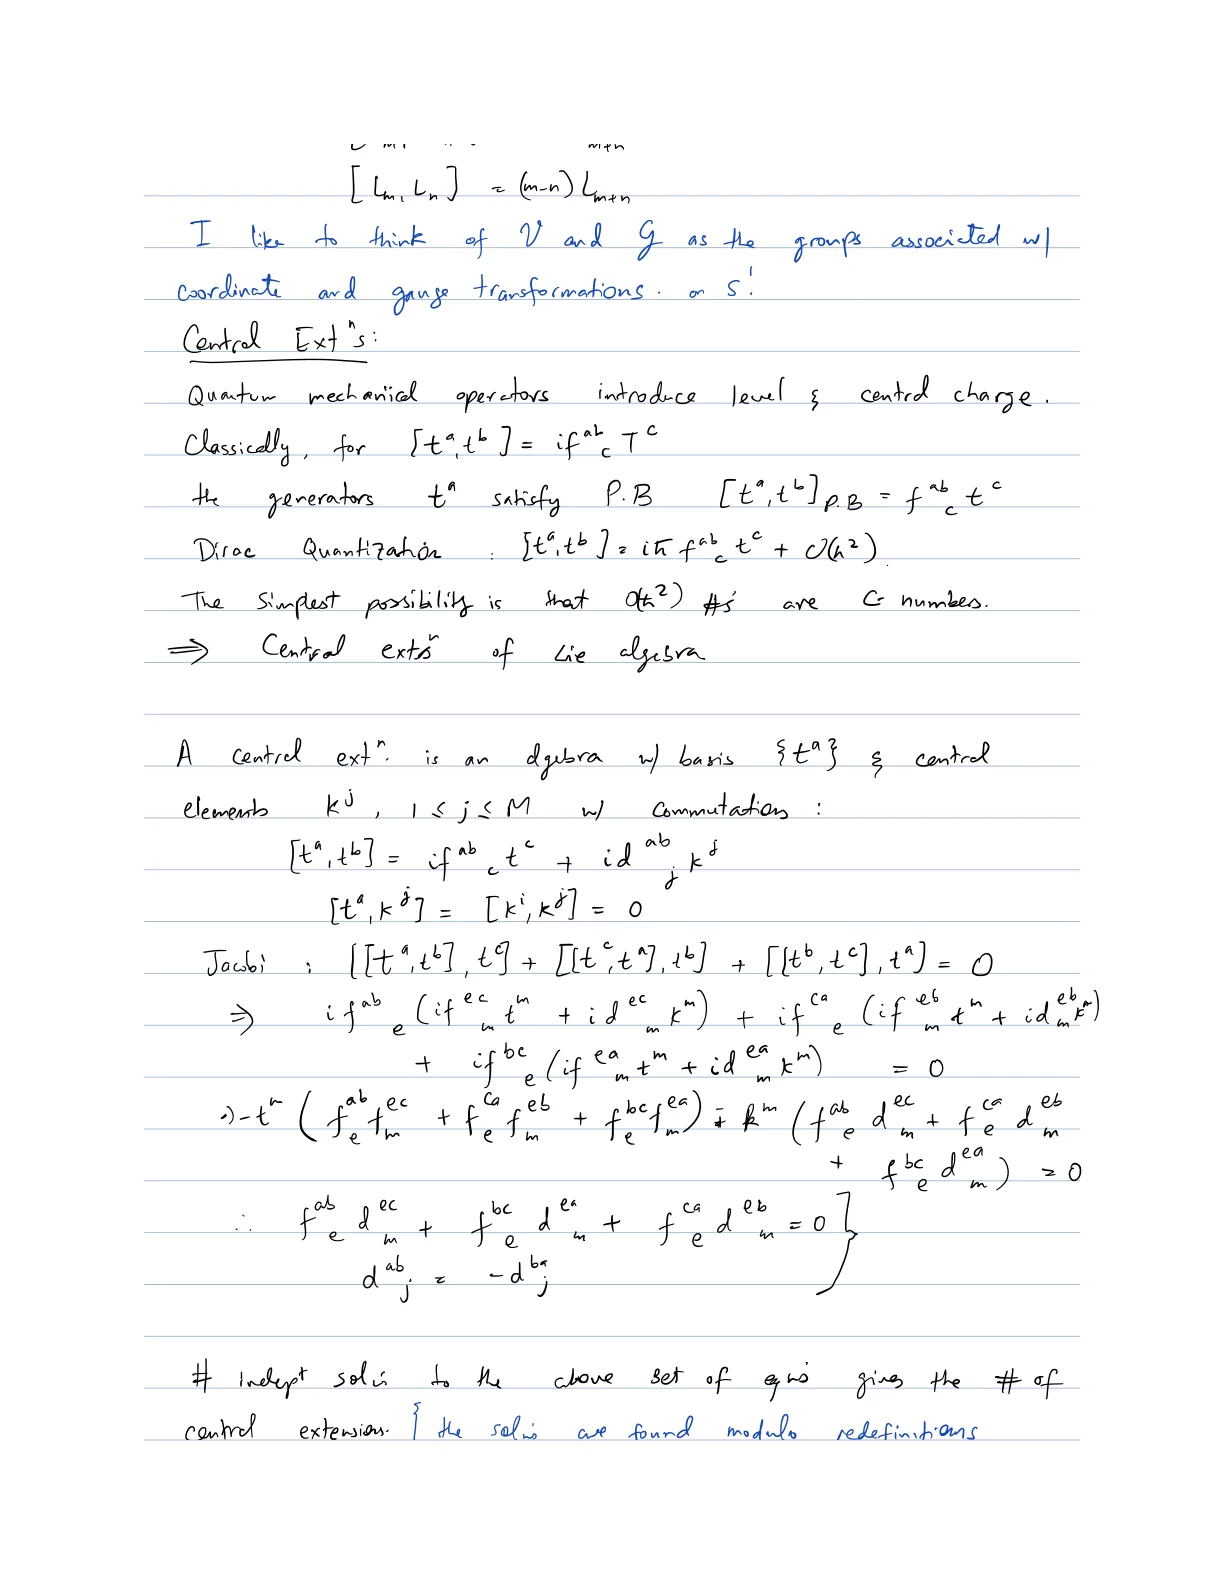 [L_m, L_n] = (m-n) L_{m+n}
I like to think of V and G as the groups associated w/
coordinate and gauge transformations. on S^1.
Central Ext^n s:
Quantum mechanical operators introduce level & central charge.
Classically, for [t^a, t^b] = i f^{ab}_c T^c
the generators t^a satisfy P.B [t^a, t^b]_{P.B} = f^{ab}_c t^c
Dirac Quantization : [t^a, t^b] = iħ f^{ab}_c t^c + O(ħ^2)
The simplest possibility is that O(ħ^2) #s are C- numbers.
⇒ Central ext^n s of Lie algebra
A central ext^n. is an algebra w/ basis {t^a} & central
elements k^j, 1 ≤ j ≤ M w/ commutation :
[t^a, t^b] = i f^{ab}_c t^c + i d^{ab}_j k^j
[t^a, k^j] = [k^i, k^j] = 0
Jacobi : [[t^a, t^b], t^c] + [[t^c, t^a], t^b] + [[t^b, t^c], t^a] = 0
⇒ i f^{ab}_e (i f^{ec}_m t^m + i d^{ec}_m k^m) + i f^{ca}_e (i f^{eb}_m t^m + i d^{eb}_m k^m)
+ i f^{bc}_e (i f^{ea}_m t^m + i d^{ea}_m k^m) = 0
⇒ - t^m (f^{ab}_e f^{ec}_m + f^{ca}_e f^{eb}_m + f^{bc}_e f^{ea}_m) - k^m (f^{ab}_e d^{ec}_m + f^{ca}_e d^{eb}_m
+ f^{bc}_e d^{ea}_m) = 0
∴ f^{ab}_e d^{ec}_m + f^{bc}_e d^{ea}_m + f^{ca}_e d^{eb}_m = 0 }
d^{ab}_j = - d^{ba}_j
# Indept sol^n s to the above set of eq^n s gives the # of
central extension. { the sol^n s are found modulo redefinitions